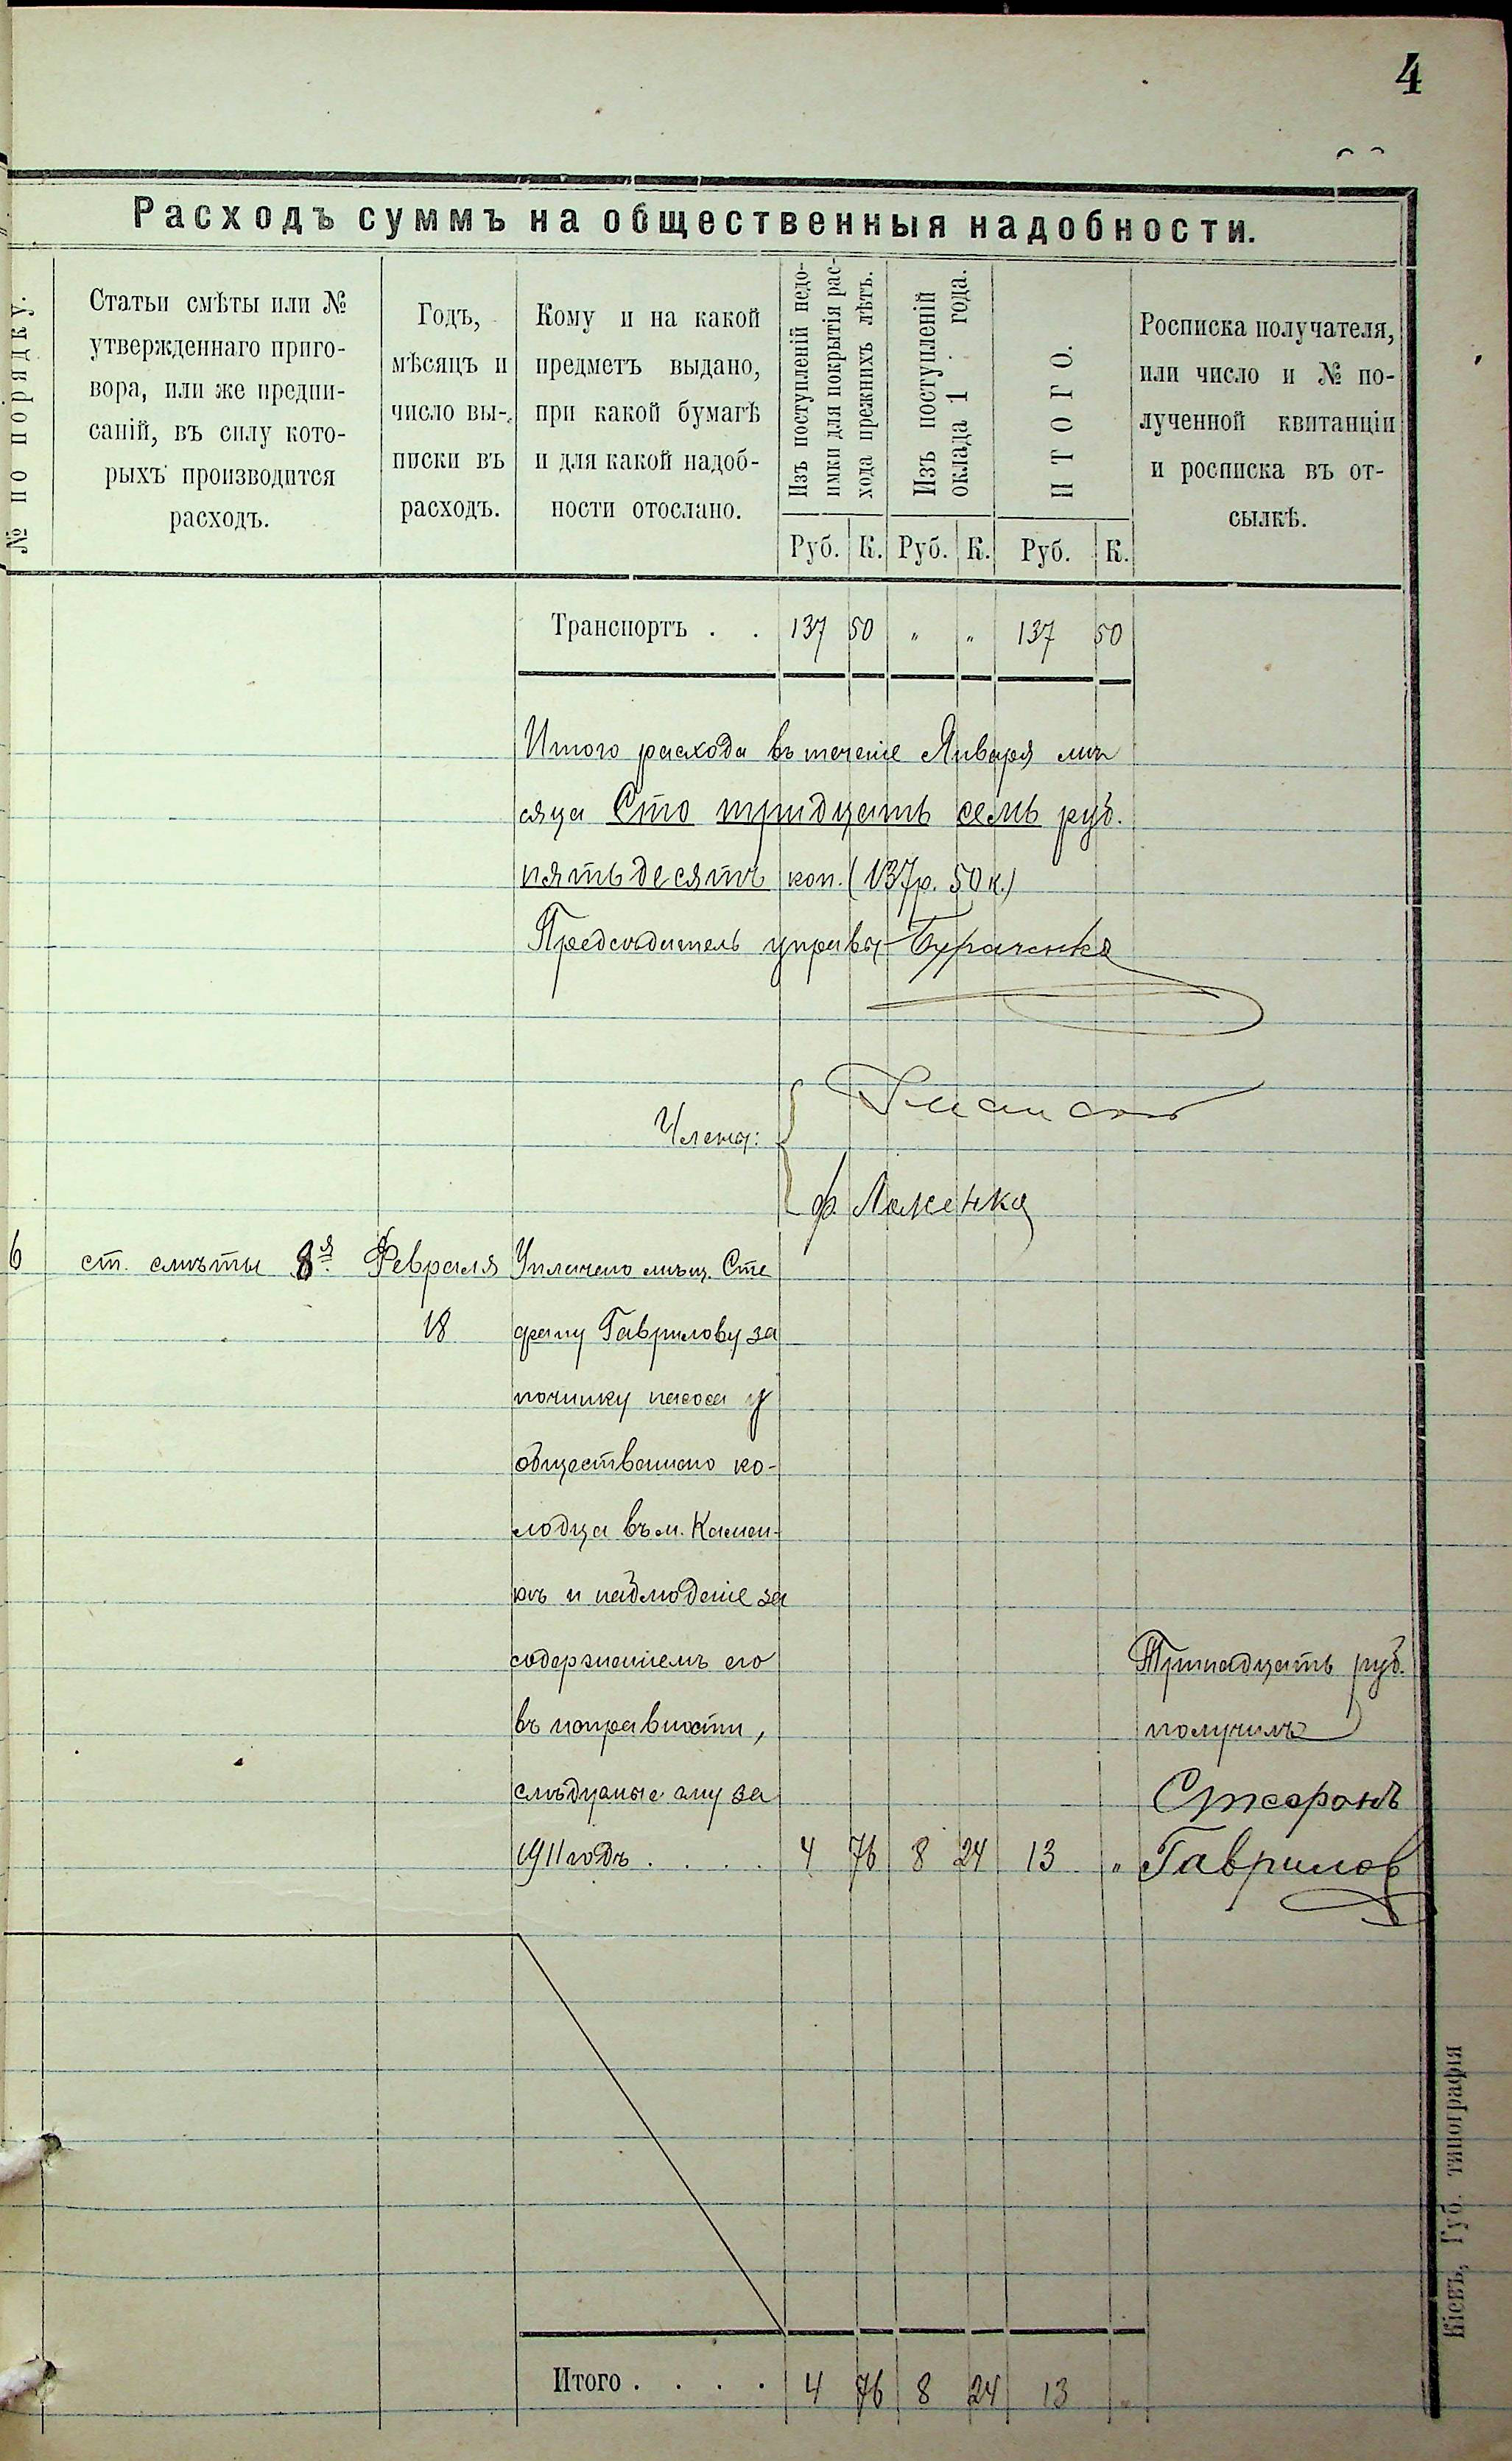 4
Расходъ суммъ на общественныя надобности.
№ по порядку.
Статьи смѣты или №
утвержденнаго приго-
вора, или же предпи-
саній, въ силу кото-
рыхъ производится
расходъ.
Годъ,
мѣсяцъ и
число вы-
писки въ
расходъ.
Кому и на какой
предметъ выдано,
при какой бумагѣ
и для какой надоб-
ности отослано.
Изъ поступленій недо-
имки для покрытія рас-
хода прежнихъ лѣтъ.
Изъ поступленій
оклада 1 года.
ИТОГО.
Росписка получателя,
или число и № по-
лученной квитанціи
и росписка въ от-
сылкѣ.
Руб. К. Руб. К. Руб. К.
Транспортъ . . 137 50 " " 137 50
Итого расхода въ теченіе Января мѣ
сяца Сто тридцать семь руб.
пятьдесятъ коп. (137 р. 50 к.)
Предсѣдатель управы
Члены:
6 ст. смѣты 8я Февраля Уплачено мѣщ. Сте
18 фану Гаврилову за
починку насоса у
общественнаго ко-
лодца въ м. Камен-
кѣ и наблюденіе за
содержаніемъ его
въ исправности,
слѣдуемые ему за
1911 годъ . . . . 4 76 8 24 13 "
Тринадцать руб.
получилъ
Стефанъ
Гаврилов
Итого . . . . 4 76 8 24 13 "
Кіевъ, Губ. типографія